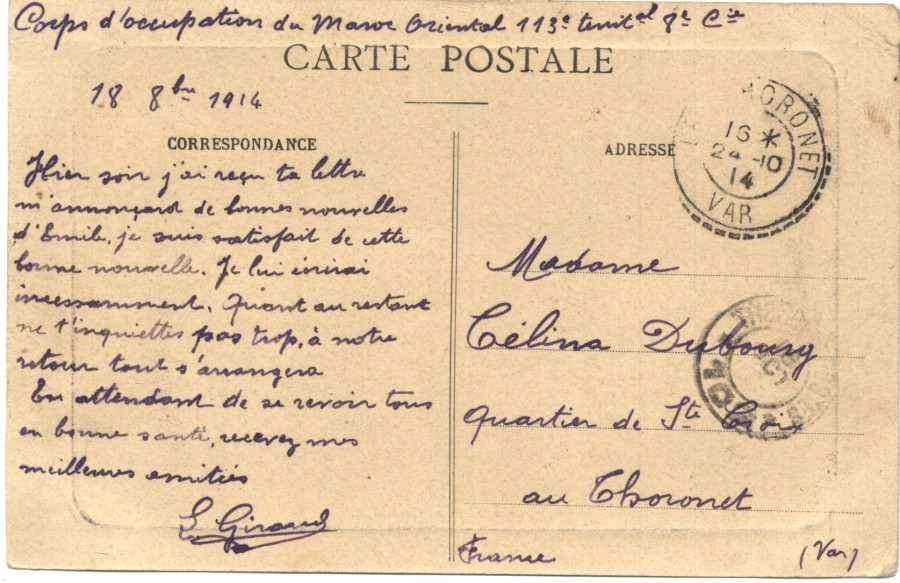 Corps d'occupation du Maroc Oriental 113e territal 8e Cie
CARTE POSTALE
18 8bre 1914
CORRESPONDANCE
Hier soir j'ai reçu ta lettre
m'annonçard de bonnes nouvelles
d'Emile, je suis satisfait de cette
bonne nouvelle. Je lui écrirai
incessamment. Quant au restant
ne t'inquiettes pas trop, à notre
retour tout s'arrangera
En attendant de se revoir tous
en bonne santé, recevez mes
meilleures amitiés
L. Giraud
ADRESSE
ORONET
16 *
24-10
14
VAR
Madame
Célina Dubourg
Quartier de Ste Croix
au Thoronet
France
(Var)